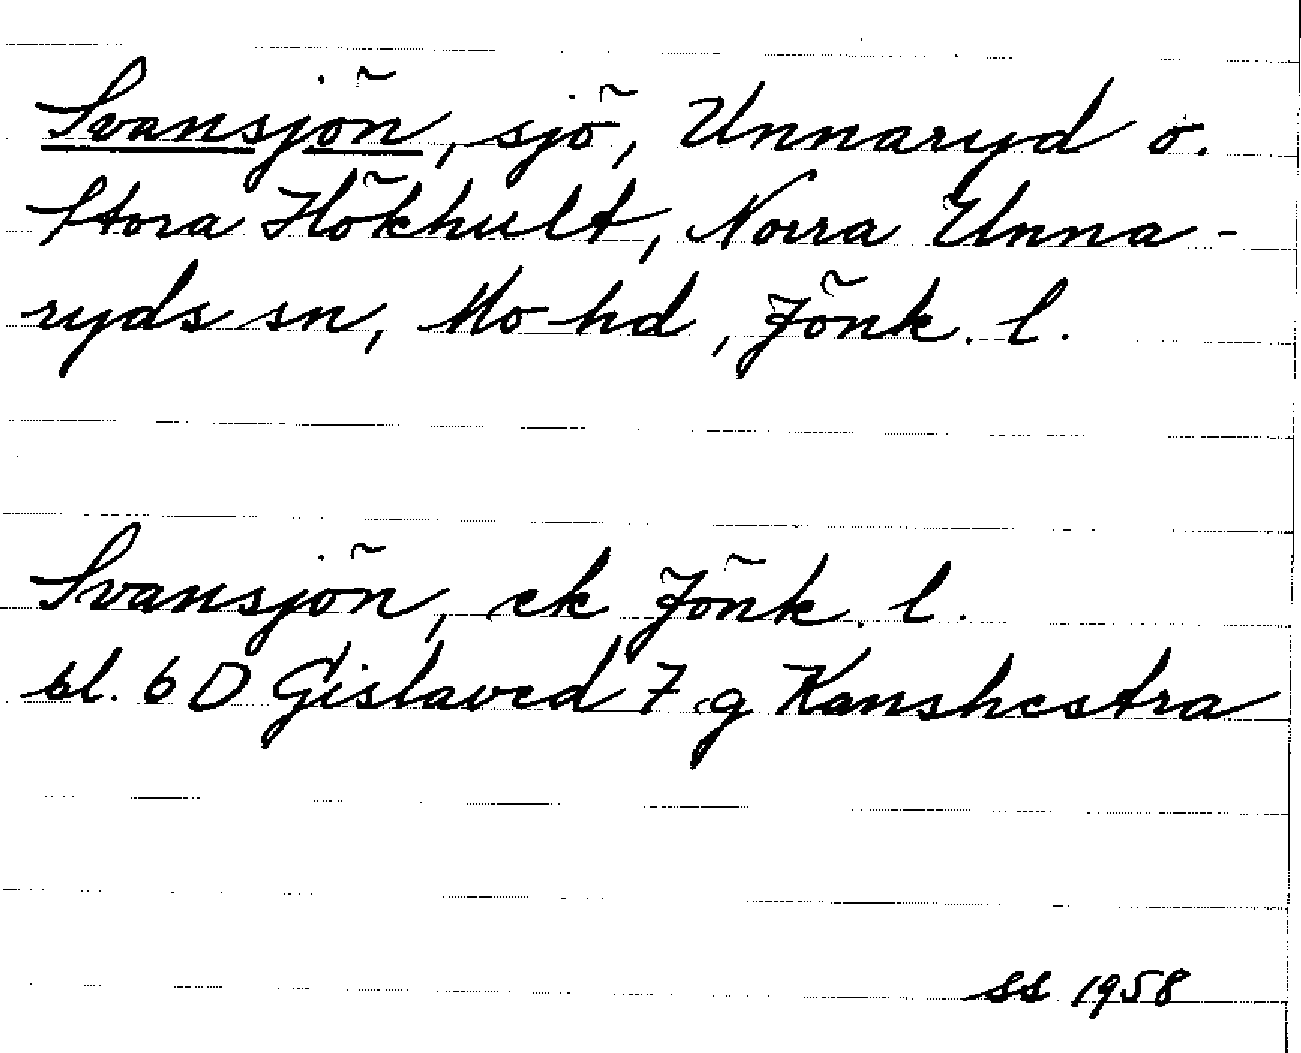 Svansjön, sjö, Unnaryd o.
Stora Hökhult, Norra Unna-
ryds sn, Mo hd, Jönk. l.
Svansjön, ek Jönk. l.
bl. 6 D Gislaved 7 g Kanshestra
SS 1958